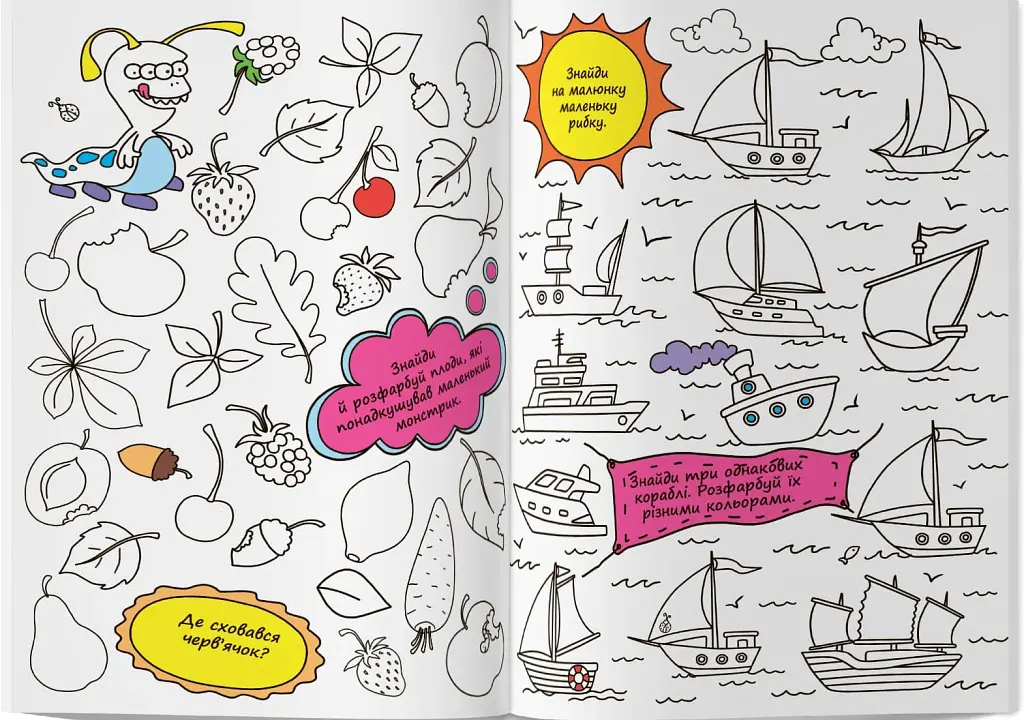 Знайди
й розфарбуй плоди, які
понадкушував маленький
монстрик.
Де сховався
черв'ячок?
Знайди
на малюнку
маленьку
рибку.
Знайди три однакових
кораблі. Розфарбуй їх
різними кольорами.